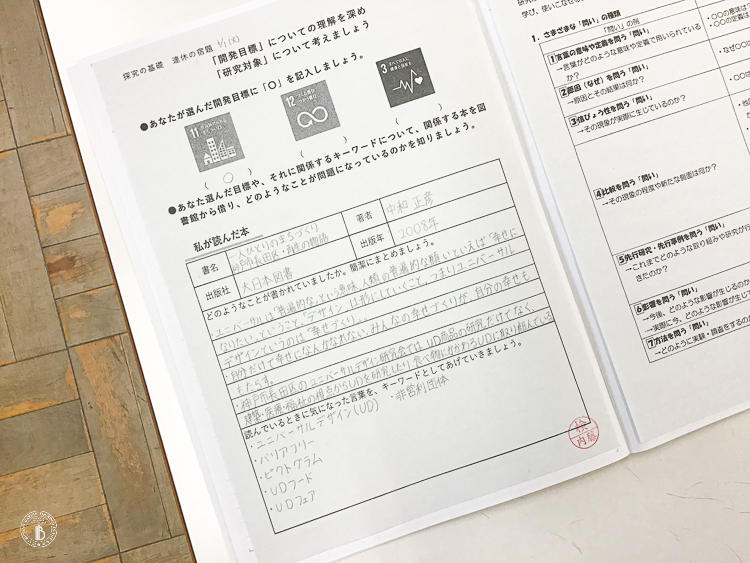 探究の基礎 連休の宿題
「開発目標」についての理解を深め
「研究対象」について考えましょう
●あなたが選んだ開発目標に「○」を記入しましょう。
11
12 つくる責任 つかう責任
3 すべての人に 健康と福祉を
( ○ ) ( ) ( )
●あなた選んだ目標や、それに関係するキーワードについて、関係する本を図
書館から借り、どのようなことが問題になっているのかを知りましょう。
私が読んだ本
書名
一人ひとりのまちづくり
神戸市長田区・再生の物語
著者
中和 正彦
出版社
大日本図書
出版年
2008年
どのようなことが書かれていましたか。簡潔にまとめましょう。
・ユニバーサルは「普遍的な」という意味 人類の普遍的な願いといえば「幸せに
なりたい」ということ。「デザイン」は形にしていくこと。つまりユニバーサル
デザインというのは“幸せづくり”。
自分だけで幸せになんかなれない。みんなの幸せづくりが、自分の幸せも
もたらす。
・神戸市長田区のユニバーサルデザイン研究会では、UD商品の研究だけでなく
建築・医療・福祉の視点からUDを研究したり、食べ物にかかわるUDに取り組んでいる
読んでいるときに気になった言葉を、キーワードとしてあげていきましょう。
・ユニバーサルデザイン(UD) ・非営利団体
・バリアフリー
・ピクトグラム
・UDフード
・UDフェア
学び、使いこなせ
1. さまざまな「問い」の種類
「問い」の例
1言葉の意味や定義を問う「問い」
→言葉がどのような意味や定義で用いられている
か?
・○○の意味は
・○○の定義
2原因(なぜ)を問う「問い」
→原因とその結果は何か?
・なぜ○○
3信ぴょう性を問う「問い」
→その現象が実際に生じているのか?
4比較を問う「問い」
→その現象の程度や新たな側面は何か?
5先行研究・先行事例を問う「問い」
→これまでどのような取り組みや研究が行
きたのか?
6影響を問う「問い」
→今後、どのような影響が生じるのか
→実際に今、どのような影響が生じ
7方法を問う「問い」
→どのように実験・調査をするのか